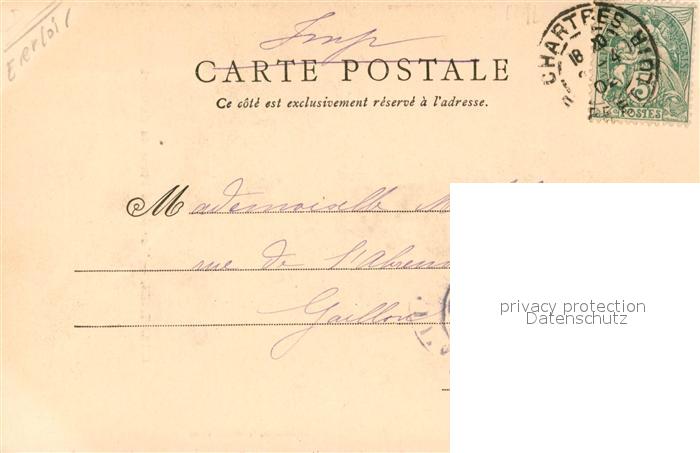 Imp
CARTE POSTALE
Ce côté est exclusivement réservé à l'adresse.
CHARTRES
18
POSTES
Mademoiselle M
rue de l'Abreu
Gaillon
privacy protection
Datenschutz